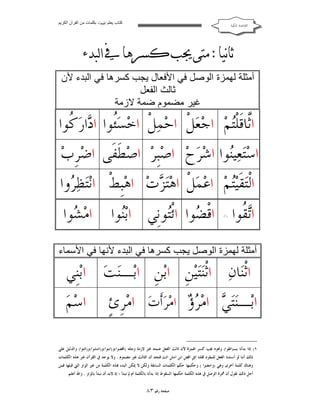 كتاب يعلم بثبوت بكلمات من القرآن الكريم
القاعدة المكية
ثانيا : متى يجب كسرها في البدء
أمثلة لهمزة الوصل في الأفعال يجب كسرها في البدء لأن
ثالث الفعل
غير مضموم ضمة لازمة
اثَّاقَلْتُمْ اجْعَلْ احْمِلْ اخْسَئُوا ادَّارَكُوا
اسْتَعِينُوا اشْرَحْ اصْبِرْ اصْطَفَى اضْرِبْ
الْتَقَيْتُمْ اعْمَلْ اهْتَزَّتْ اهْبِطْ انْتَظِرُوا
اتَّقُوا اقْضُوا ائْتُونِي ابْنُوا امْشُوا
أمثلة لهمزة الوصل يجب كسرها في البدء لأنها في الأسماء
اثْنَانِ اثْنَتَيْنِ ابْنِ ابْـــنَـتَ ابْنِي
ابْـــنَتَيَّ امْرُؤٌ امْرَأَتَ امْرِئٍ اسْمَ
صفحة رقم ٨٣